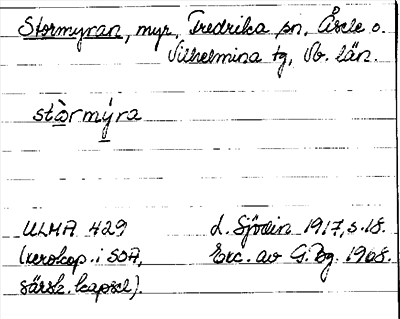 Stormyran, myr, Fredrika sn, Åsele o.
Vilhelmina tg, Vb. län.
stòrmýra
ULMA 429
(xerokop. i SOA,
särsk. kapsel).
L. Sjödin 1917, s. 18.
Exc. av G. Pg. 1968.